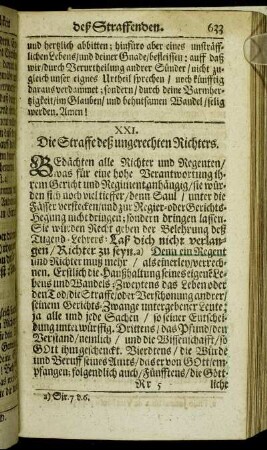 deß Straffenden. 633
und hertzlich abbitten; hinfüro aber eines unsträff-
lichen Lebens/und deiner Gnade/befleissen; auff daß
wir/durch Verurtheilung andrer Sünder/nicht zu-
gleich unser eignes Urtheil sprechen / noch künfftig
daraus verdammet; sondern/durch deine Barmher-
tzigkeit/im Glauben/und behutsamen Wandel/selig
werden. Amen!
XXI.
Die Straffe deß ungerechten Richters.
Bedächten alle Richter und Regenten/
was für eine hohe Verantwortung ih-
rem Gericht und Regiment anhängig/sie wür-
den sich noch viel tieffer/denn Saul / unter die
Fässer verstecken/und zur Regier-oder Gerichts-
Hegung nicht dringen; sondern dringen lassen.
Sie würden Recht geben der Belehrung deß
Tugend-Lehrers: Laß dich nicht verlan-
gen/Richter zu seyn.a) Denn ein Regent
und Richter muß mehr / als einerley/verrech-
nen. Erstlich die Haußhaltung seines eigenẽ Le-
bens und Wandels; Zweytens das Leben oder
den Tod/die Straffe/oder Versehonung andrer/
seinem Gerichts-Zwange untergebener Leute;
ja alle und jede Sachen / so seiner Entschei-
dung unterwürffig. Drittens / das Pfund/den
Verstand/nemlich / und die Wissenschafft/so
GOtt ihm geschenckt. Vierdtens / die Würde
und Beruff seines Amts/das er von GOtt em-
pfangen: folgendlich auch/Fünfftens/die Gött-
Rr 5 liche
a) Sir. 7. v. 6.